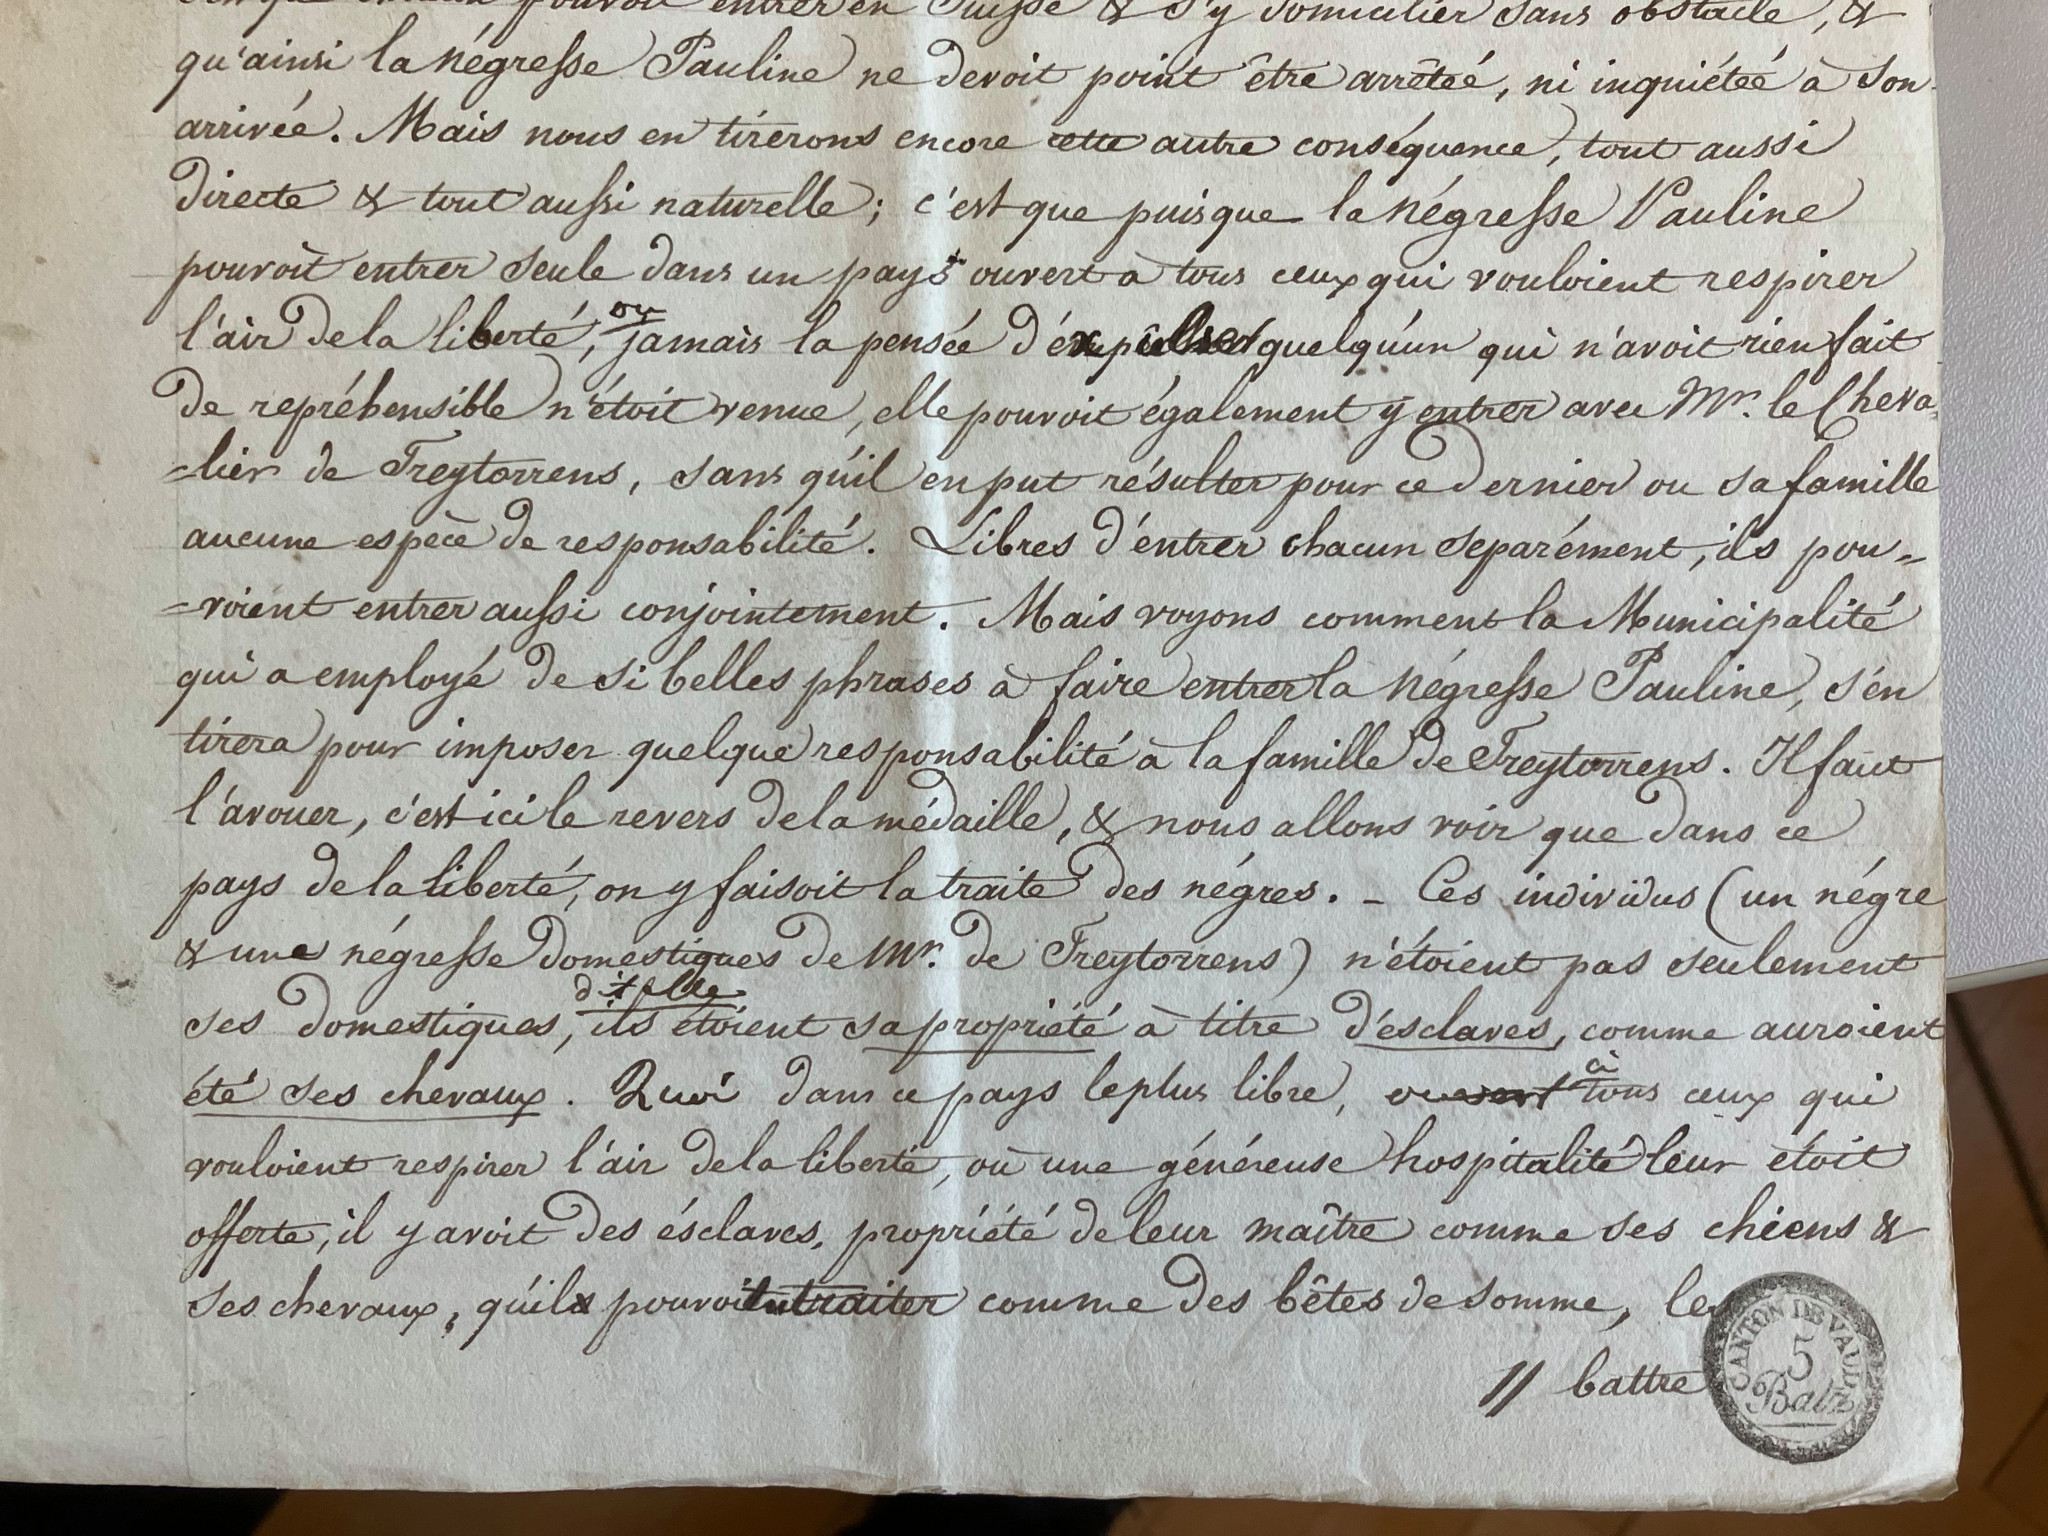 chacun pouvoit entrer en Suisse & s'y domicilier sans obstacle, &
qu'ainsi la négresse Pauline ne devoit point être arrêteé, ni inquiéteé à son
arrivée. Mais nous en tirerons encore cette autre conséquence, tout aussi
directe & tout aussi naturelle; c'est que puisque la négresse Pauline
pouvoit entrer seule dans un pays ouvert à tous ceux qui vouloient respirer
l'air de la liberté, où jamais la pensée d'éxpulser quelqu'un qui n'avoit rien fait
de repréhensible n'étoit venue, elle pouvoit également y entrer avec Mr. le Cheva=
=lier de Treytorrens, sans qu'il en put résulter pour ce dernier ou sa famille
aucune espèce de responsabilité. Libres d'éntrer chacun separément, ils pou=
=voient entrer aussi conjointement. Mais voyons comment la Municipalité
qui a employé de si belles phrases à faire entrer la négresse Pauline, s'én
tirera pour imposer quelque responsabilité à la famille de Treytorrens. Il faut
l'avouer, c'est ici le revers de la médaille, & nous allons voir que dans ce
pays de la liberté, on y faisoit la traite des négres. – Ces individus (un négre
& une négresse domestiques de Mr. de Treytorrens) n'étoient pas seulement
dit elle
ses domestiques, ils étoient sa propriété à titre d'esclaves, comme auroient
été ses chevaux. Quoi dans ce pays le plus libre, ouvert à tous ceux qui
vouloient respirer l'air de la liberté, où une généreuse hospitalité leur étoit
offerte, il y avoit des ésclaves, propriété de leur maître comme ses chiens &
ses chevaux, qu'il pouvoit traiter comme des bêtes de somme, les
// battre
CANTON DE VAUD
5
Batz